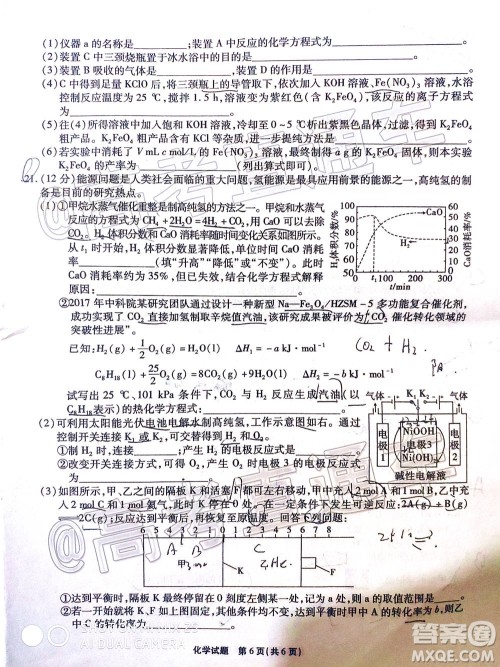 (1)仪器 a 的名称是________;装置 A 中反应的化学方程式为________。
(2)装置 C 中三颈烧瓶置于冰水浴中的目的是________。
(3)装置 B 吸收的气体是________,装置 D 的作用是________。
(4)C 中得到足量 KClO 后,将三颈瓶上的导管取下,依次加入 KOH 溶液、Fe(NO₃)₃ 溶液,水浴
控制反应温度为 25 ℃,搅拌 1.5 h,溶液变为紫红色(含 K₂FeO₄),该反应的离子方程式
为________。
(5)往(4)所得溶液中加入饱和 KOH 溶液,冷却至 0~5 ℃析出紫黑色晶体,过滤,得到 K₂FeO₄
粗产品。K₂FeO₄ 粗产品含有 KCl 等杂质,进一步提纯方法是________。
21.(12 分)能源问题是人类社会面临的重大问题,氢能源是最具应用前景的能源之一,高纯氢的制
备是目前的研究热点。
(1)①甲烷水蒸气催化重整是制高纯氢的方法之一。甲烷和水蒸气
反应的方程式为 CH₄+2H₂O=4H₂+CO₂,用 CaO 可以去除
CO₂。H₂ 体积分数和 CaO 消耗率随时间变化关系如图所示。
从 t₁ 时开始,H₂ 体积分数显著降低,单位时间 CaO 消耗率
________(填“升高”“降低”或“不变”)。此时 CaO 消耗
率约为 35%,但已失效,结合化学方程式解释
原因:________。
H₂体积分数/%
CaO消耗率/%
CaO
H₂
t₁
t/min
②2017 年中科院某研究团队通过设计一种新型 Na—Fe₃O₄/HZSM-5 多功能复合催化剂,
成功实现了 CO₂ 直接加氢制取辛烷值汽油,该研究成果被评价为“CO₂ 催化转化领域的
突破性进展”。
CO₂ + H₂
已知:H₂(g)+1/2O₂(g)=H₂O(l) ΔH=-a kJ·mol⁻¹
C₈H₁₈(l)+25/2O₂(g)=8CO₂(g)+9H₂O(l) ΔH=-b kJ·mol⁻¹
试写出 25 ℃、101 kPa 条件下,CO₂ 与 H₂ 反应生成汽油(以
C₈H₁₈ 表示)的热化学方程式:________。
(2)可利用太阳能光伏电池电解水制高纯氢,工作示意图如右。通过
控制开关连接 K₁ 或 K₂,可交替得到 H₂、O₂。
①制 H₂ 时,连接________;产生 H₂ 的电极反应式是________。
②改变开关连接方式,可得 O₂ 时电极 3 的电极反应式为
________。
气体
K₁ K₂
气体
电极1
NiOOH
电极3
Ni(OH)₂
电极2
碱性电解液
(3)如图所示,甲、乙之间的隔板 K 和活塞 F 都可左右移动,甲中充入 2 mol A 和 1 mol B,乙中充
入 2 mol C 和 1 mol 氦气,此时 K 停在 0 处。在一定条件下发生可逆反应:2A(g)+B(g)
2C(g);反应达到平衡后,再恢复至原温度。回答下列问题:
6 5 4 3 2 1 0 1 2 3 4 5 6 7 8
A
B
C
K
F
①达到平衡时,隔板 K 最终停留在 0 刻度左侧某一处,记为 a 处,则 a 的取值范围是________。
②若一开始就将 K、F 如上图固定,其他条件均不变,达到平衡时甲中 A 的转化率为 b,则乙
中 C 的转化率为________。
化学试题 第 6 页(共 6 页)
SHOT ON MI
AI DUAL CAMERA
@高考直通车
答案圈